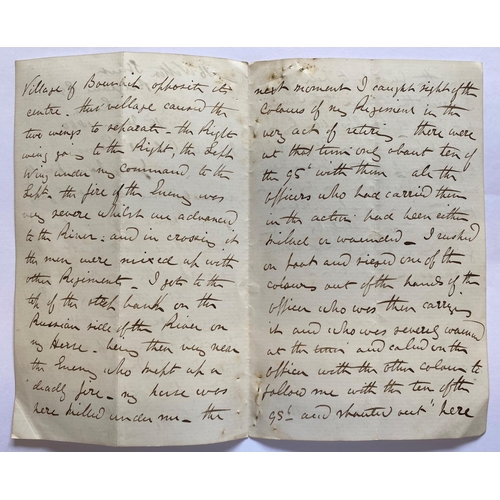 Village of Bournkit opposite its
centre. this village caused the
two wings to separate - the Right
wing going to the Right, the Left
Wing under my command to the
Left - the fire of the Enemy was
very severe whilst we advanced
to the River - and in crossing it
the men were mixed up with
other Regiments - I got to the
top of the steep bank on the
Russian side of the River on
my Horse - being then very near
the Enemy who kept up a
deadly fire - my horse was
here killed under me - the
next moment I caught sight of the
Colours of my Regiment in the
very act of retiring - there were
at that time only about ten of
the 95th with them all the
officers who had carried them
in the action had been either
killed or wounded - I rushed
on foot and seized one of the
colours out of the hands of the
officer who was then carrying
it and who was severely wounded
at the time and called on the
officer with the other colour to
follow me with the ten of the
95th and shouted out "here